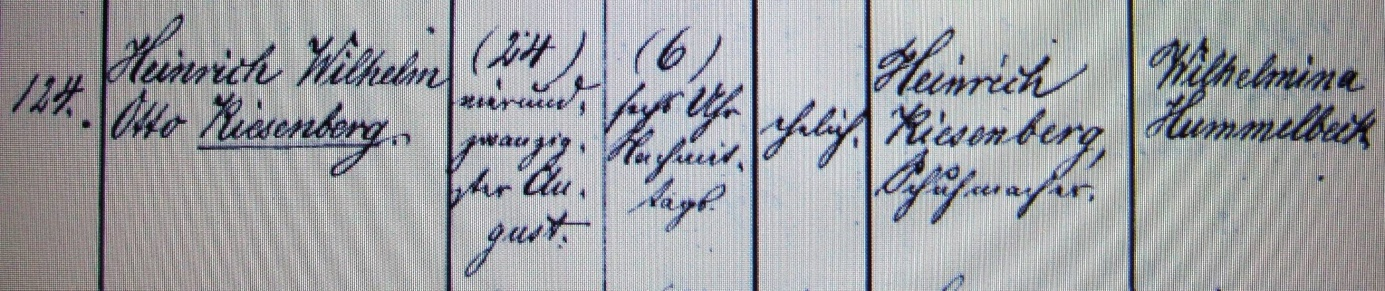 124.
Heinrich Wilhelm
Otto Riesenberg.
(24)
vierund-
zwanzig-
ster Au-
gust.
(6)
sechs Uhr
Nachmit-
tags.
ehelich.
Heinrich
Riesenberg,
Schuhmacher.
Wilhelmina
Hummelbeck